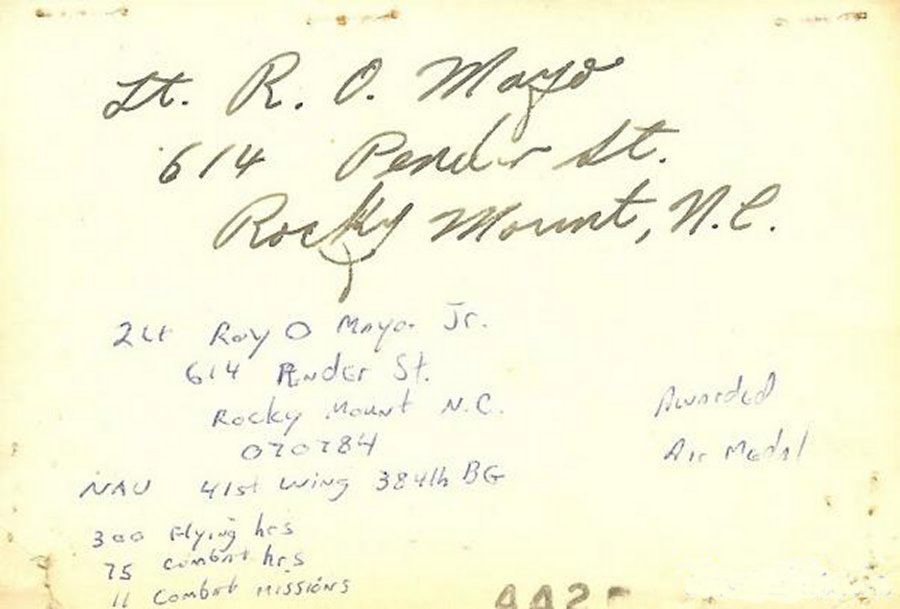 Lt. R. O. Mayo
614 Pender St.
Rocky Mount, N.C.
2Lt Roy O Mayo Jr.
614 Pender St.
Rocky Mount N.C.
Awarded
Air Medal
NAV 41st Wing 384th BG
300 Flying hrs
75 combat hrs
11 Combat missions